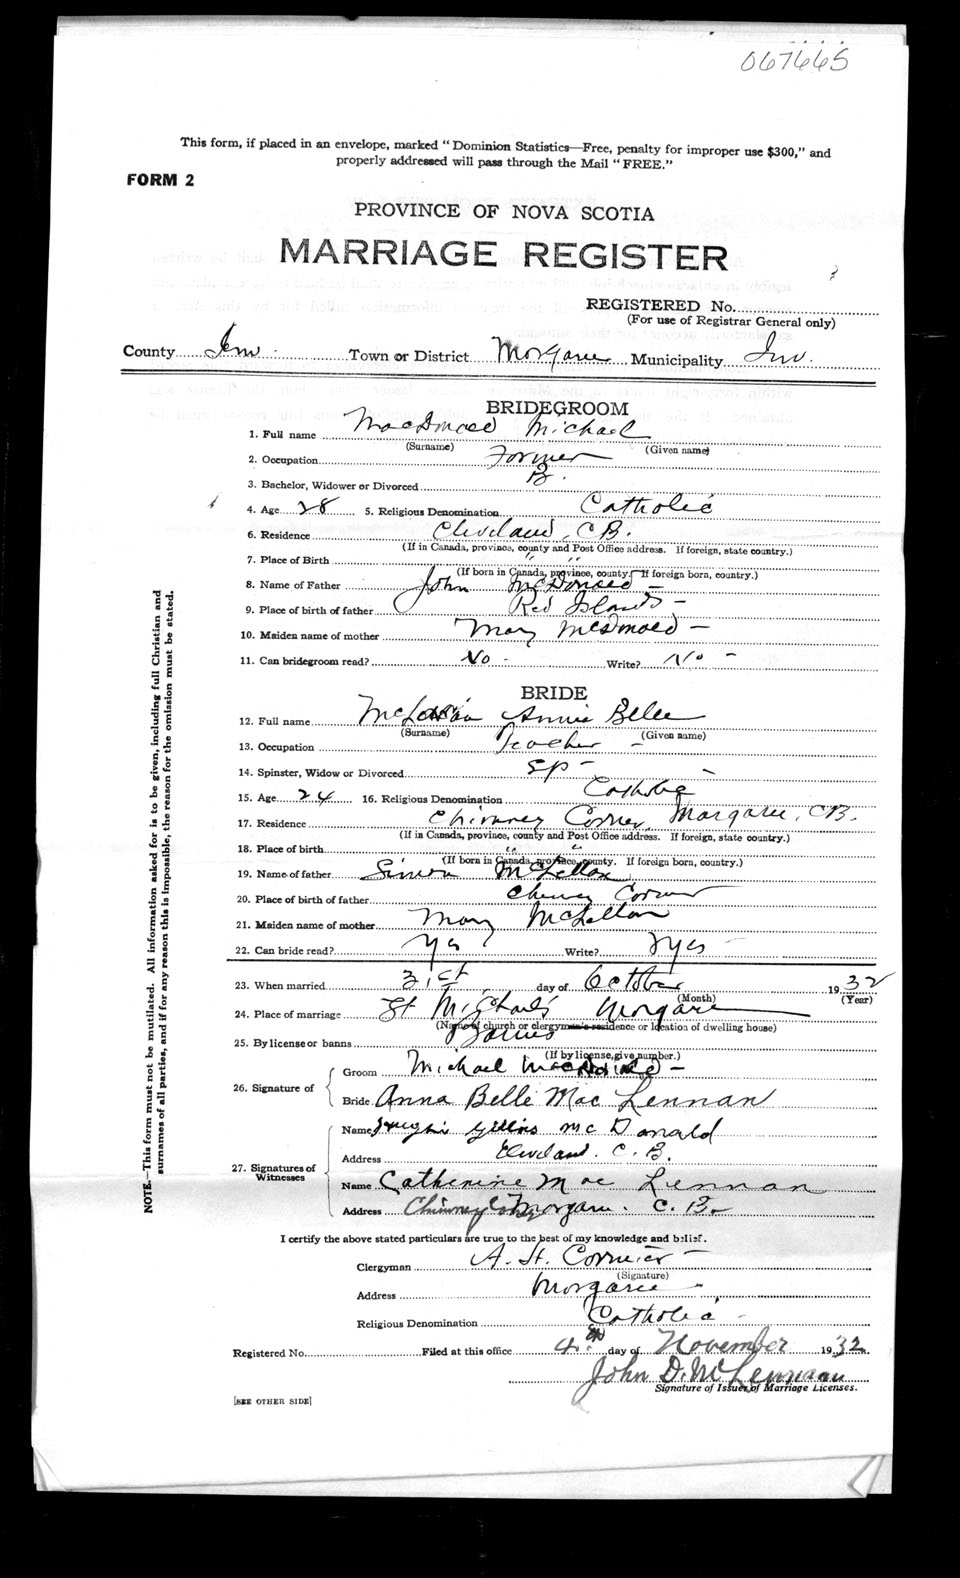 067665
This form, if placed in an envelope, marked “ Dominion Statistics—Free, penalty for improper use $300,” and
properly addressed will pass through the Mail “ FREE.”
FORM 2
PROVINCE OF NOVA SCOTIA
MARRIAGE REGISTER
REGISTERED No.
(For use of Registrar General only)
County Inv. Town or District Margaree Municipality Inv.
BRIDEGROOM
1. Full name MacDonald Michael
(Surname) (Given name)
2. Occupation Farmer
3. Bachelor, Widower or Divorced B.
4. Age 28 5. Religious Denomination Catholic
6. Residence Cleveland, C.B.
(If in Canada, province, county and Post Office address. If foreign, state country.)
7. Place of Birth " "
(If born in Canada, province, county. If foreign born, country.)
8. Name of Father John McDonald -
9. Place of birth of father Red Islands -
10. Maiden name of mother Mary McDonald -
11. Can bridegroom read? No - Write? No -
BRIDE
12. Full name Annie Belle
(Surname) (Given name)
13. Occupation Teacher -
14. Spinster, Widow or Divorced Sp -
15. Age 24 16. Religious Denomination Catholic
17. Residence Chimney Corner, Margaree, C.B.
(If in Canada, province, county and Post Office address. If foreign, state country.)
18. Place of birth " "
(If born in Canada, province, county. If foreign born, country.)
19. Name of father Simon McLellan
20. Place of birth of father Corner
21. Maiden name of mother Mary McLellan
22. Can bride read? Yes Write? Yes -
23. When married 31st day of October 1932
(Month) (Year)
24. Place of marriage St Michael's Margaree
(Name of church or clergyman's residence or location of dwelling house)
25. By license or banns Banns
(If by license, give number.)
26. Signature of
Groom Michael MacDonald -
Bride Anna Belle Mac Lennan
27. Signatures of
Witnesses
Name McDonald
Address Cleveland. C. B.
Name Catherine Mac Lennan
Address Chimney Corner Margaree. C. B.
I certify the above stated particulars are true to the best of my knowledge and belief.
Clergyman A. H. Cormier -
(Signature)
Address Margaree -
Religious Denomination Catholic -
Registered No. Filed at this office 4th day of November 1932.
John D. McLennan
Signature of Issuer of Marriage Licenses.
[SEE OTHER SIDE]
NOTE.—This form must not be mutilated. All information asked for is to be given, including full Christian and
surnames of all parties, and if for any reason this is impossible, the reason for the omission must be stated.